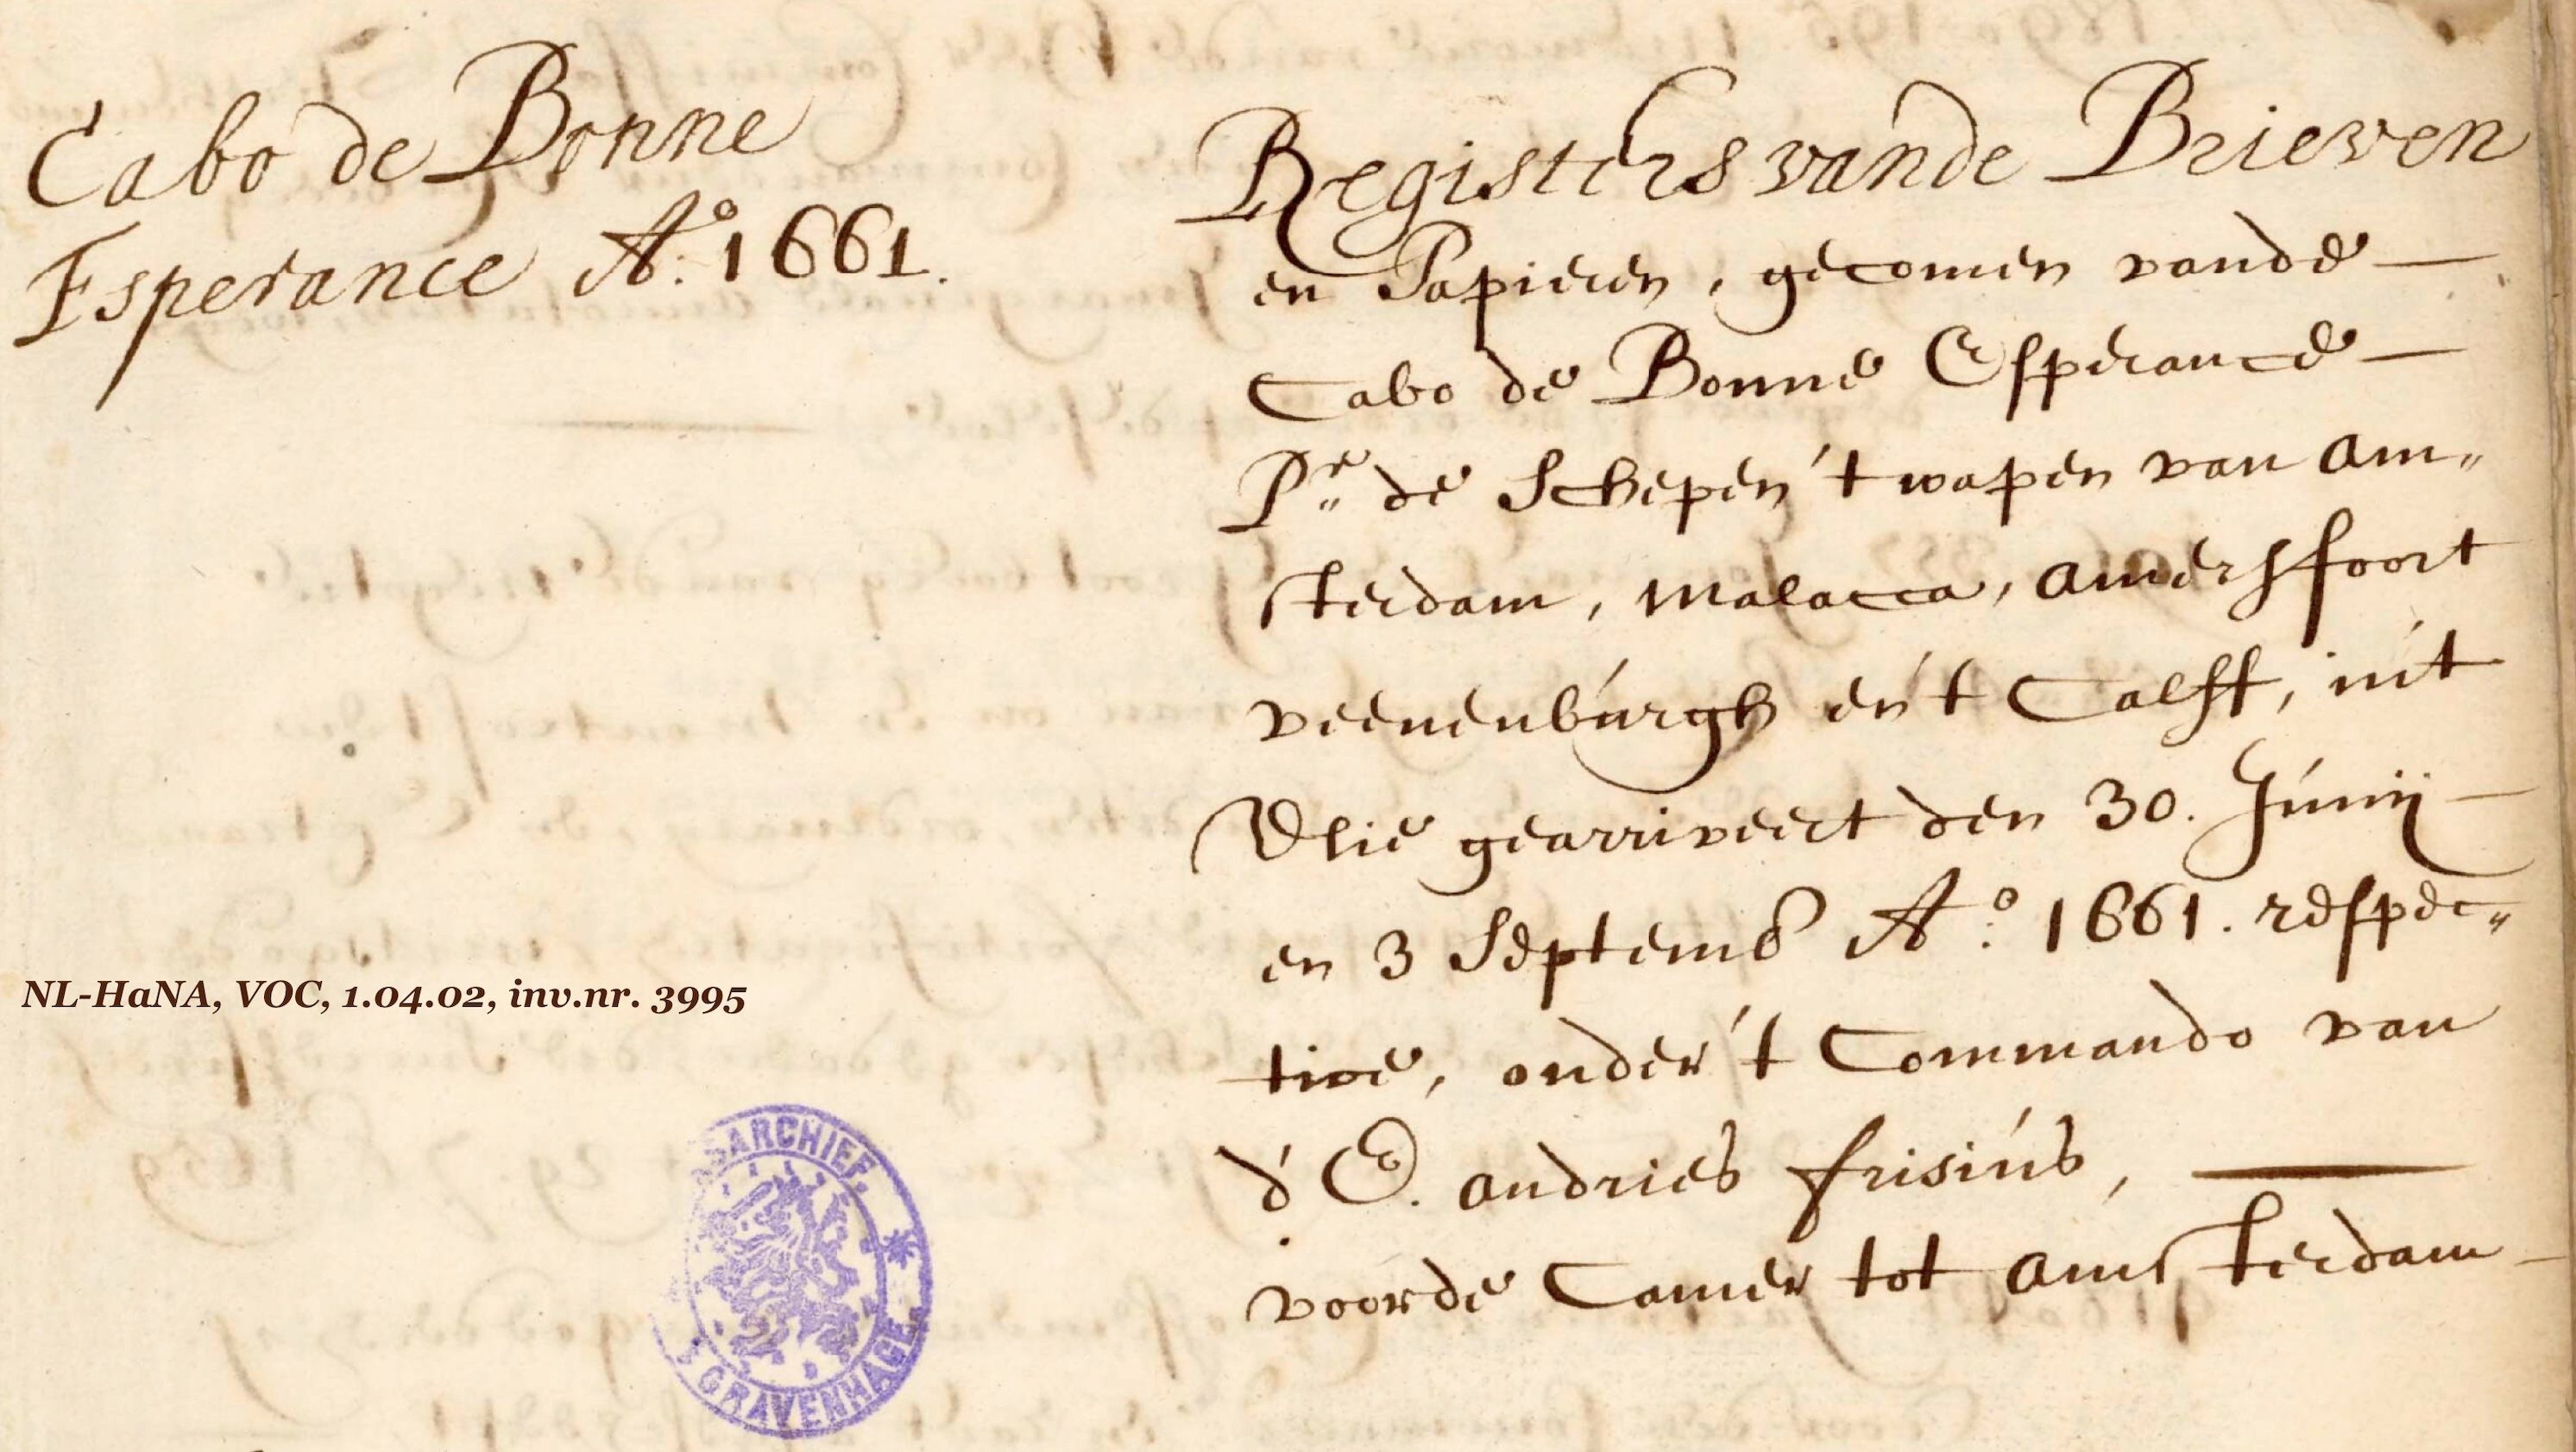 Cabo de Bonne
Esperance A:o 1661.
Registers vande Brieven
en Papieren, gecomen vande
Cabo de Bonne Esperance
P:r de Schepen 't wapen van Am„
sterdam, Malacca, Amersfoort
veenenburgh en 't Calff, int
Vlie gearriveert den 30. Junij
en 3 Septemb A:o 1661. respec„
tive, onder 't Commando van
d' E. Andries frisius,
voorde Camer tot Amsterdam
NL-HaNA, VOC, 1.04.02, inv.nr. 3995
SARCHIEF
GRAVENHAGE